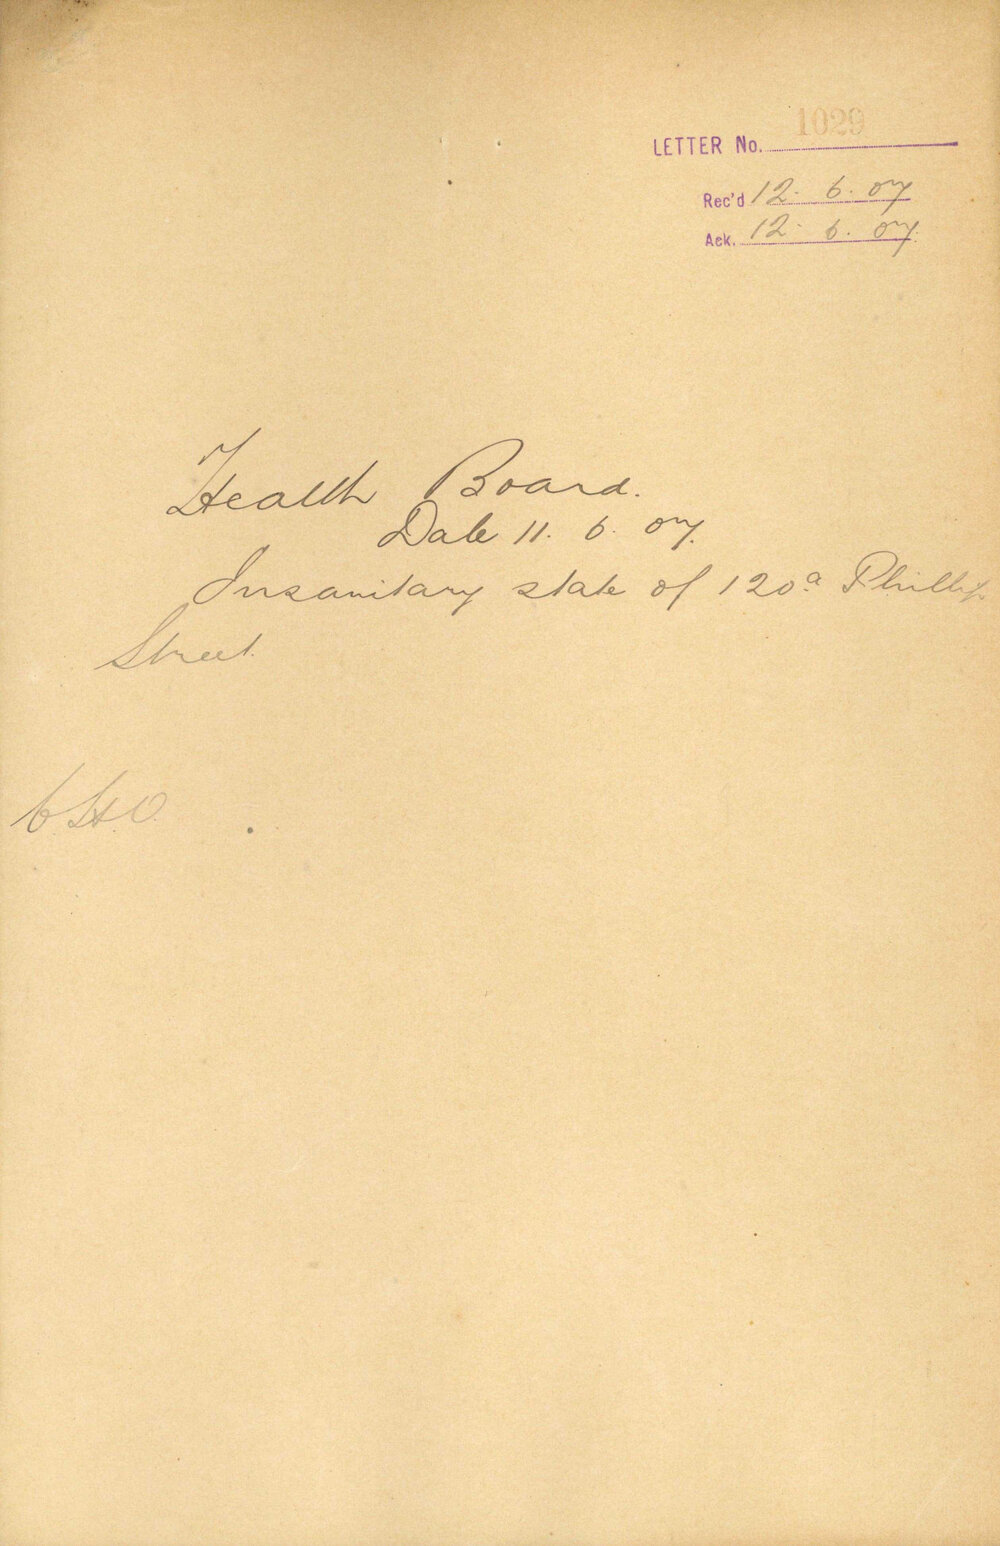 LETTER No. 1029
Rec'd 12. 6. 07
Ack. 12. 6. 07.
Health Board.
Date 11. 6. 07.
Insanitary state of 120a Phillip
Street.
C.H.O.